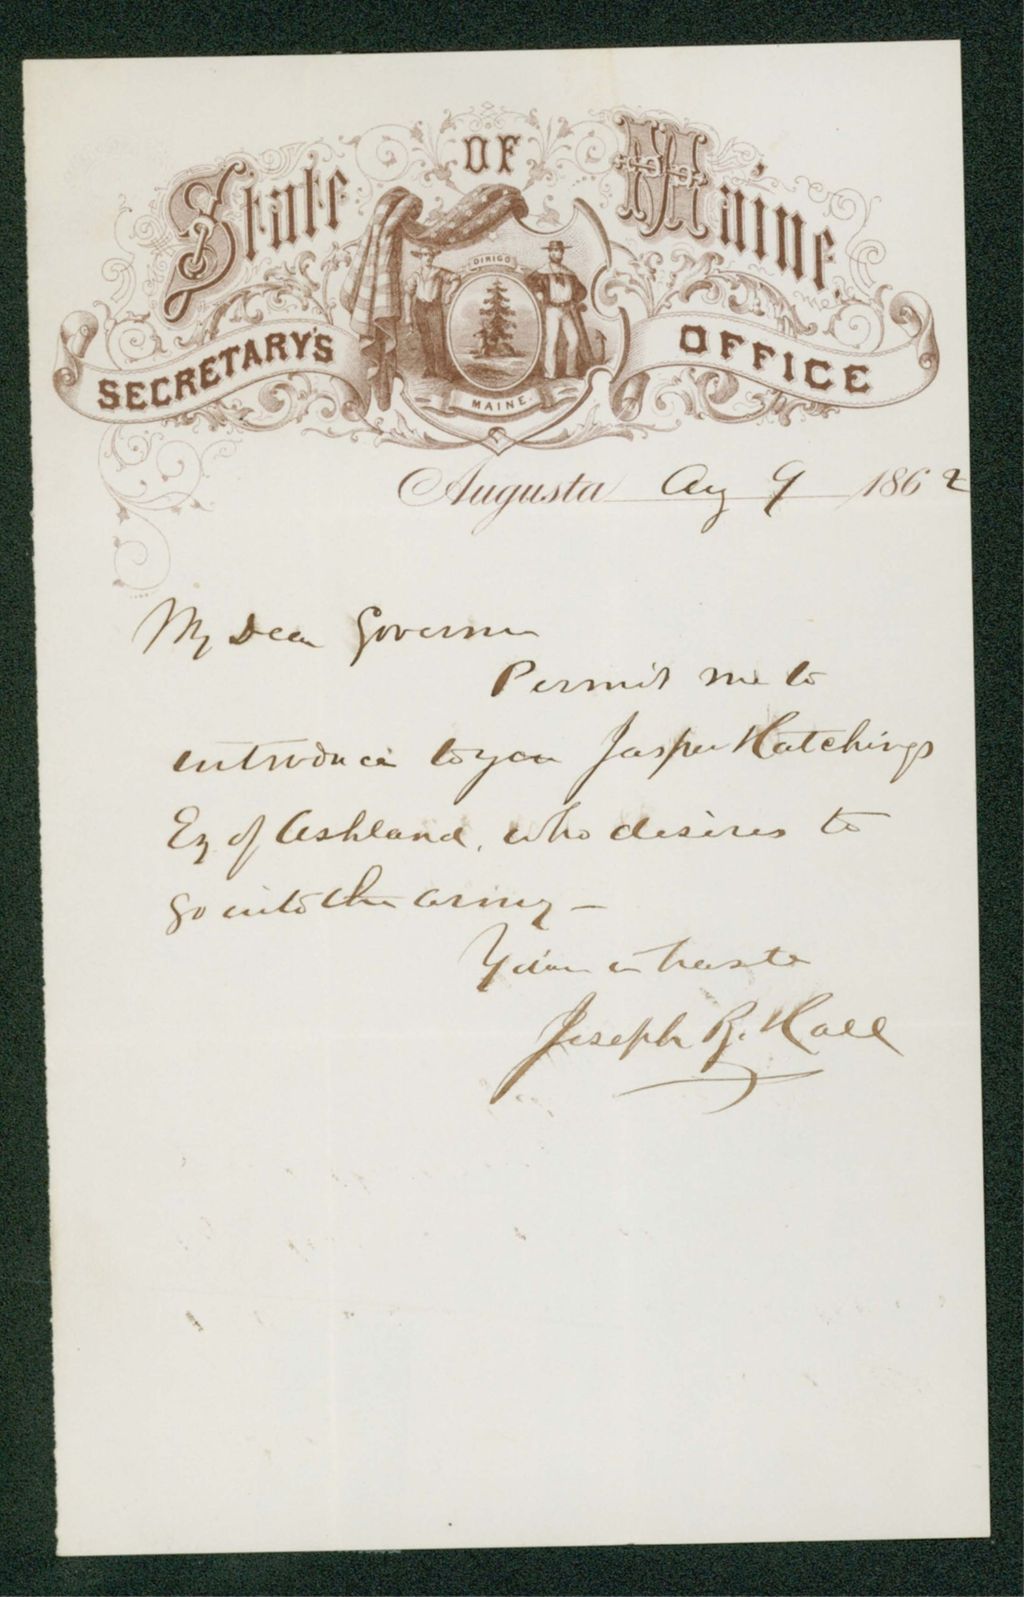 State OF Maine.
SECRETARY'S OFFICE
DIRIGO
MAINE.
Augusta Aug 9 1862
My Dear Governor
Permit me to
introduce to you Jasper Hutchings
Esq of Ashland, who desires to
go into the army –
Yours in haste
Joseph B. Hall